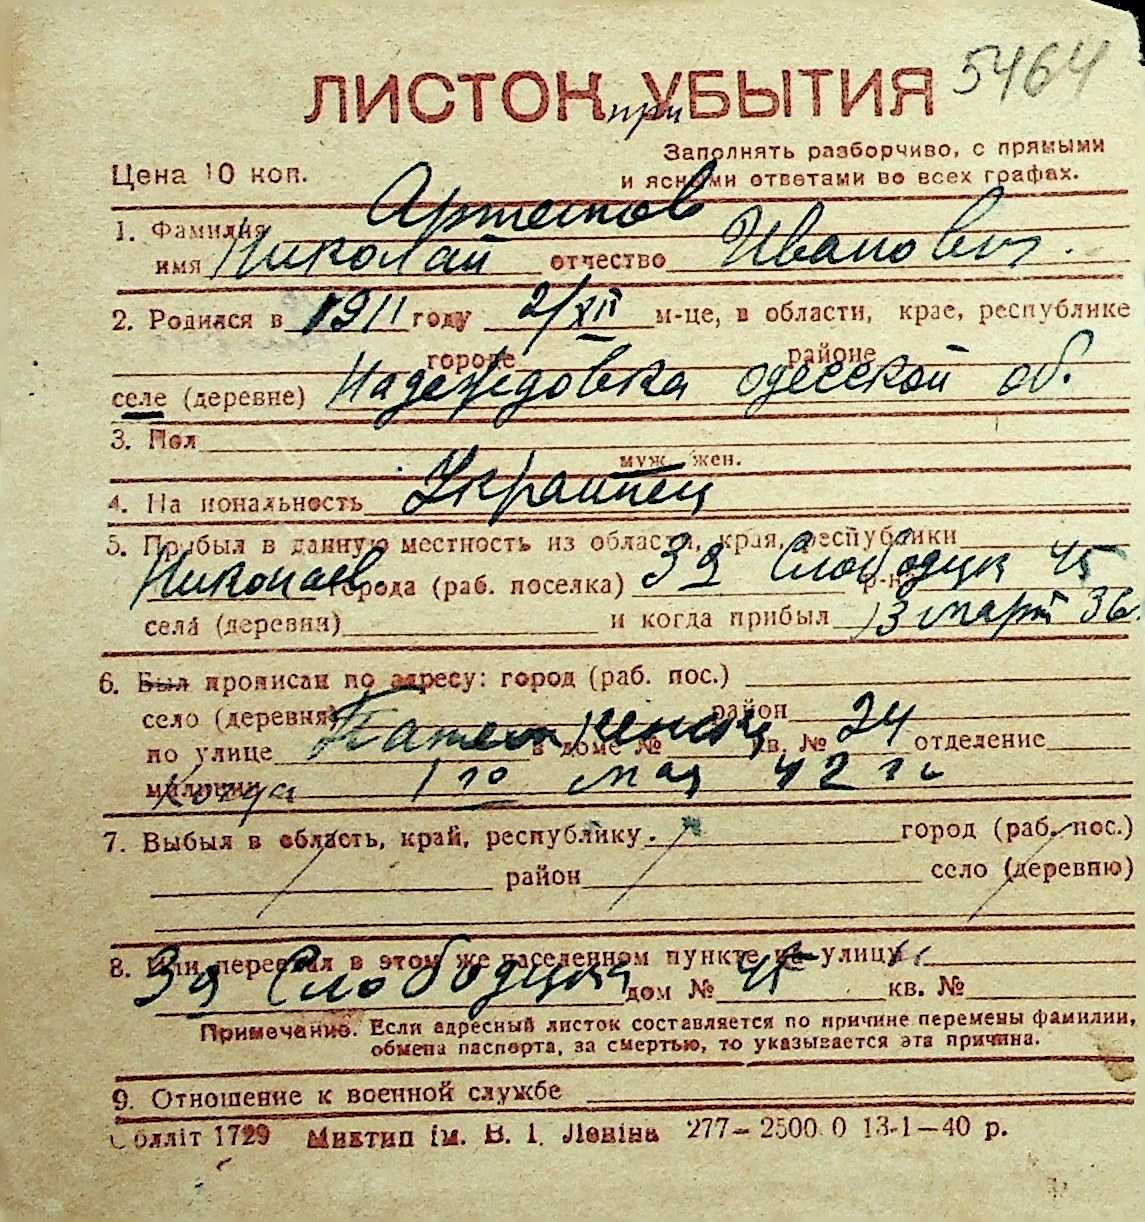 5464
ЛИСТОК при УБЫТИЯ
Заполнять разборчиво, с прямыми
Цена 10 коп. и ясными ответами во всех графах.
1. Фамилия Артемов
имя Николай отчество Иванович.
2. Родился в 1911 году 2/XII м-це, в области, крае, республике
городе районе
селе (деревне) Надеждовка одесской об.
3. Пол
муж. жен.
4. На иональность Украинец
5. Прибыл в данную местность из области, края, республики
Николаев города (раб. поселка) 3я Слободцк р-на 45
села (деревни) и когда прибыл 13 март 36.
6. Был прописан по адресу: город (раб. пос.)
село (деревня) район
по улице в доме № кв. № 24 отделение
милиции Когда 1го мая 42 г.
7. Выбыл в область, край, республику. город (раб. пос.)
район село (деревню)
8. Или переехал в этом же населенном пункте на улицу
3я Слободцка дом № 45 кв. №
Примечание. Если адресный листок составляется по причине перемены фамилии,
обмена паспорта, за смертью, то указывается эта причина.
9. Отношение к военной службе
Обллiт 1729 Миктип iм. В. I. Ленiна 277—2500 0 13-1—40 р.